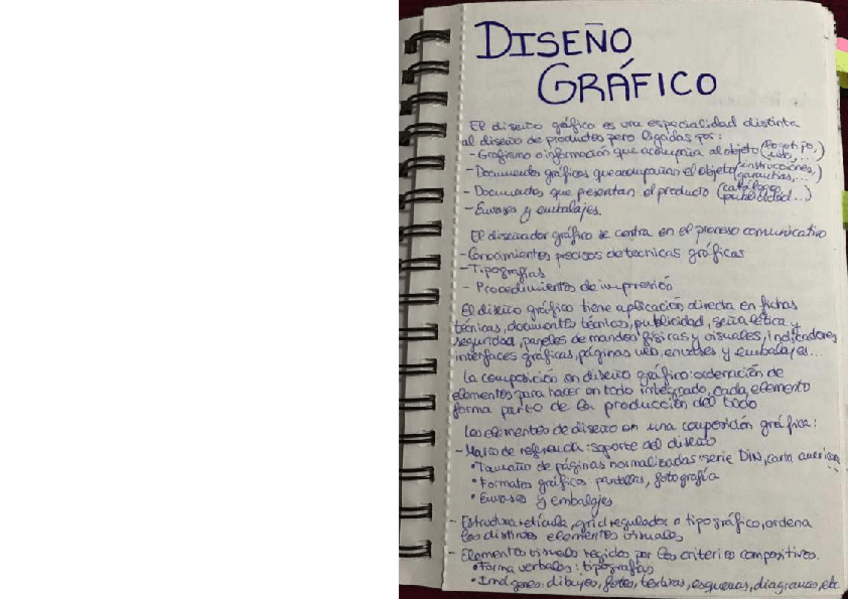 DISEÑO
GRÁFICO
El diseño gráfico es una especialidad distinta
al diseño de productos pero ligadas por:
- Grafismo o información que acompaña al objeto (logotipo,
...)
- Documentos gráficos que acompañan el objeto (instrucciones,
garantías,...)
- Documentos que presentan el producto (catálogo,
publicidad...)
- Envases y embalajes.
El diseñador gráfico se centra en el proceso comunicativo
- Conocimientos precisos de tecnicas gráficas
- Tipografías
- Procedimientos de impresión
El diseño gráfico tiene aplicación directa en fichas
técnicas, documentos técnicos, publicidad, señalética y
seguridad, paneles de mandos físicas y visuales, indicadores
interfaces gráficas, páginas web, envases y embalajes...
La composición en diseño gráfico: ordenación de
elementos para hacer un todo integrado, cada elemento
forma parte de la producción del todo.
Los elementos de diseño en una composición gráfica:
- Marco de referencia: soporte del diseño
• Tamaño de páginas normalizadas: serie DIN, carta americana
• Formatos gráficos: pantallas, fotografía
• Envases y embalajes
- Estructura: retícula, grid regulador o tipográfico, ordena
los distintos elementos visuales
- Elementos visuales regidos por los criterios compositivos.
• Forma verbales: tipografías
• Imágenes: dibujos, fotos, texturas, esquemas, diagramas, etc.